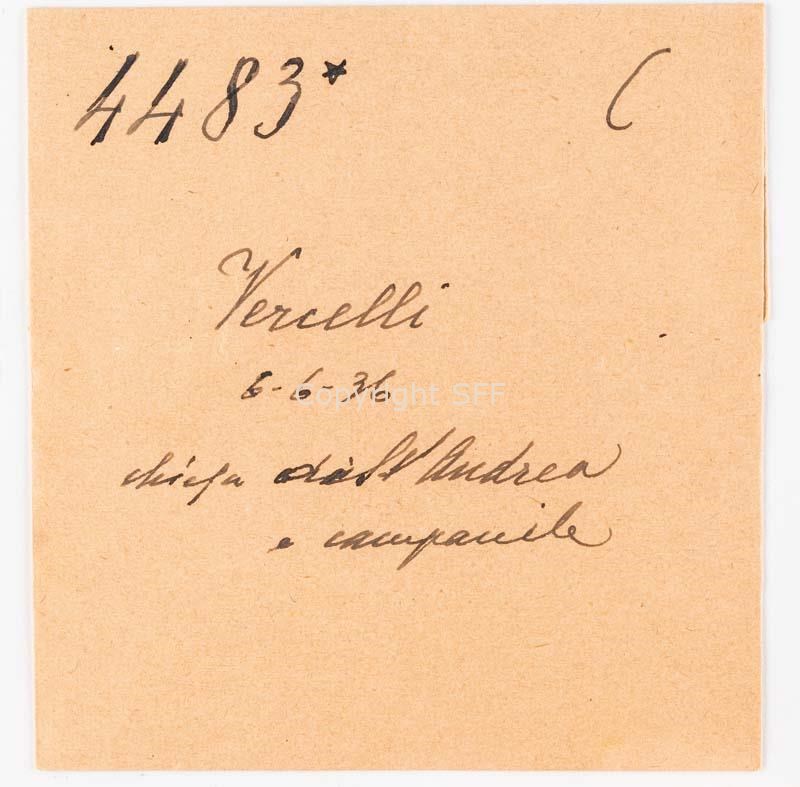 4483* C
Vercelli
6-6-36
Copyright SFF
chiesa di St Andrea
e campanile